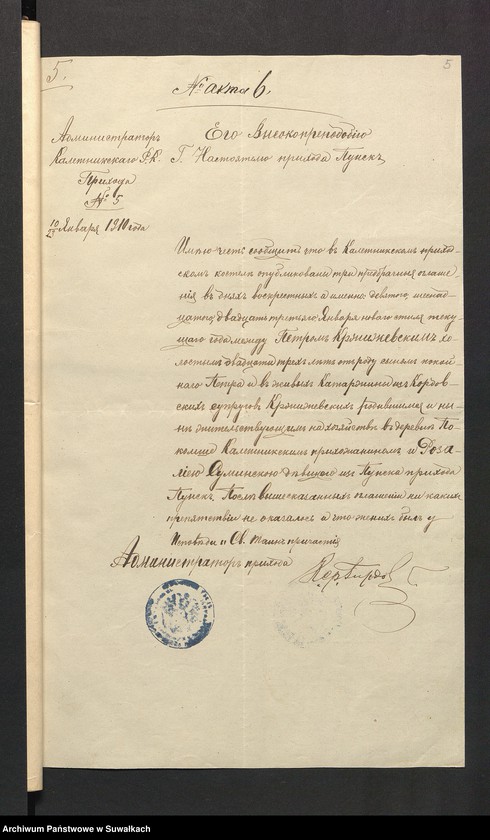 5.
5
№ акта 6.
Администраторъ
Калетникскаго Р.К.
Прихода
№ 5
10/23 Января 1910 года
Его Высокопреподобію
Г. Настоятелю прихода Пунскъ
Имѣю честь сообщить что в Калетникскомъ приход-
скомъ костелѣ опубликованы три предбрачныя оглаше-
нія въ дняхъ воскрестныхъ а именно: девятого, шестнад-
цатого, двадцать третьяго Января новаго стиля теку-
щаго года между Петромъ Кржижевскимъ хо-
лостымъ двадцати трехъ лѣтъ отъ роду сыномъ покой-
наго Петра и в живыхъ Катаржины изъ Кордов-
скихъ супруговъ Кржижевскихъ родившимся и ны-
нѣ жительствующимъ на хозяйствѣ в деревнѣ
Калетникским прихожаниномъ и Роза-
ліею Суминскою дѣвицою изъ Пунска прихода
Пунскъ. Послѣ вышесказанныхъ оглашеній ни какихъ
препятствій не оказалось и что женихъ былъ у
Исповѣди и Св. Таинъ причастія
Администраторъ прихода
Archiwum Państwowe w Suwałkach